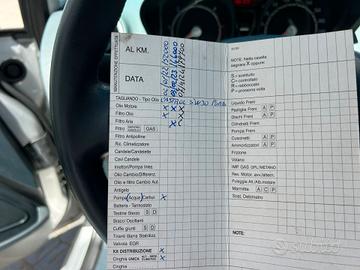 MANUTENZIONE EFFETTUATA
AL KM.
DATA
NOTE: Nella casella
segnare X oppure:
S = sostituito
C = controllato
R = rabboccato
P = prossima volta
TAGLIANDO - Tipo Olio CASTROL 5W30
Olio Motore
Filtro Olio X X X
Filtro Aria X
Filtro GAS
Filtro Antipolline
Ric. Climatizzatore
Candele/Candelette
Cavi Candele
Iniettori/Pompa Iniez.
Olio Cambio/Differenz.
Olio e filtro Cambio Aut.
Antigelo
Pompa Acqua Carbur. X
Batteria - Termostato
Testine Sterzo S D
Bracci Oscillanti
Cuffie giunti S D
Tiranti Barra Stabilizz.
Valvola EGR
Kit DISTRIBUZIONE X
Cinghia UNICA X
Cinghia
Liquido Freni
Pastiglie Freni A P
Dischi Freni A P
Cilindretti Freni
Pompa Freni
Cuscinetti A P
Ammortizzatori A P
Frizione
Volano
IMP. GAS GPL/METANO
Rev. Motore, avv./altern.
Puleggia Alt./Alb.motore
Marmitta A C P
Sost. Debimetro
NOTE: